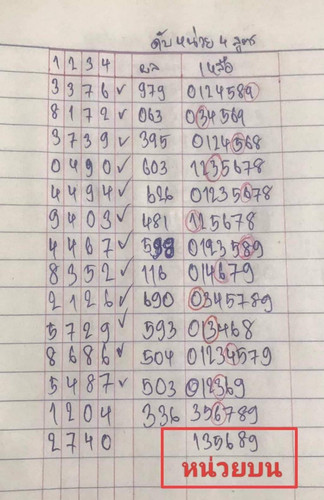 ดับ หน่วย 4 สูตร
1 2 3 4 ผล เหลือ
3 3 7 6 ✓ 979 0124589
8 1 7 2 ✓ 063 034569
3 7 3 9 ✓ 395 0124568
0 4 9 0 ✓ 603 1235678
4 4 9 4 ✓ 626 01235678
9 4 0 3 ✓ 481 125678
4 4 6 7 ✓ 598 0123589
8 3 5 2 ✓ 116 014679
2 1 2 6 ✓ 690 0345789
5 7 2 9 ✓ 593 013468
8 6 8 6 ✓ 504 01234579
5 4 8 7 ✓ 503 012369
1 2 0 4 336 356789
2 7 4 0 135689
หน่วยบน